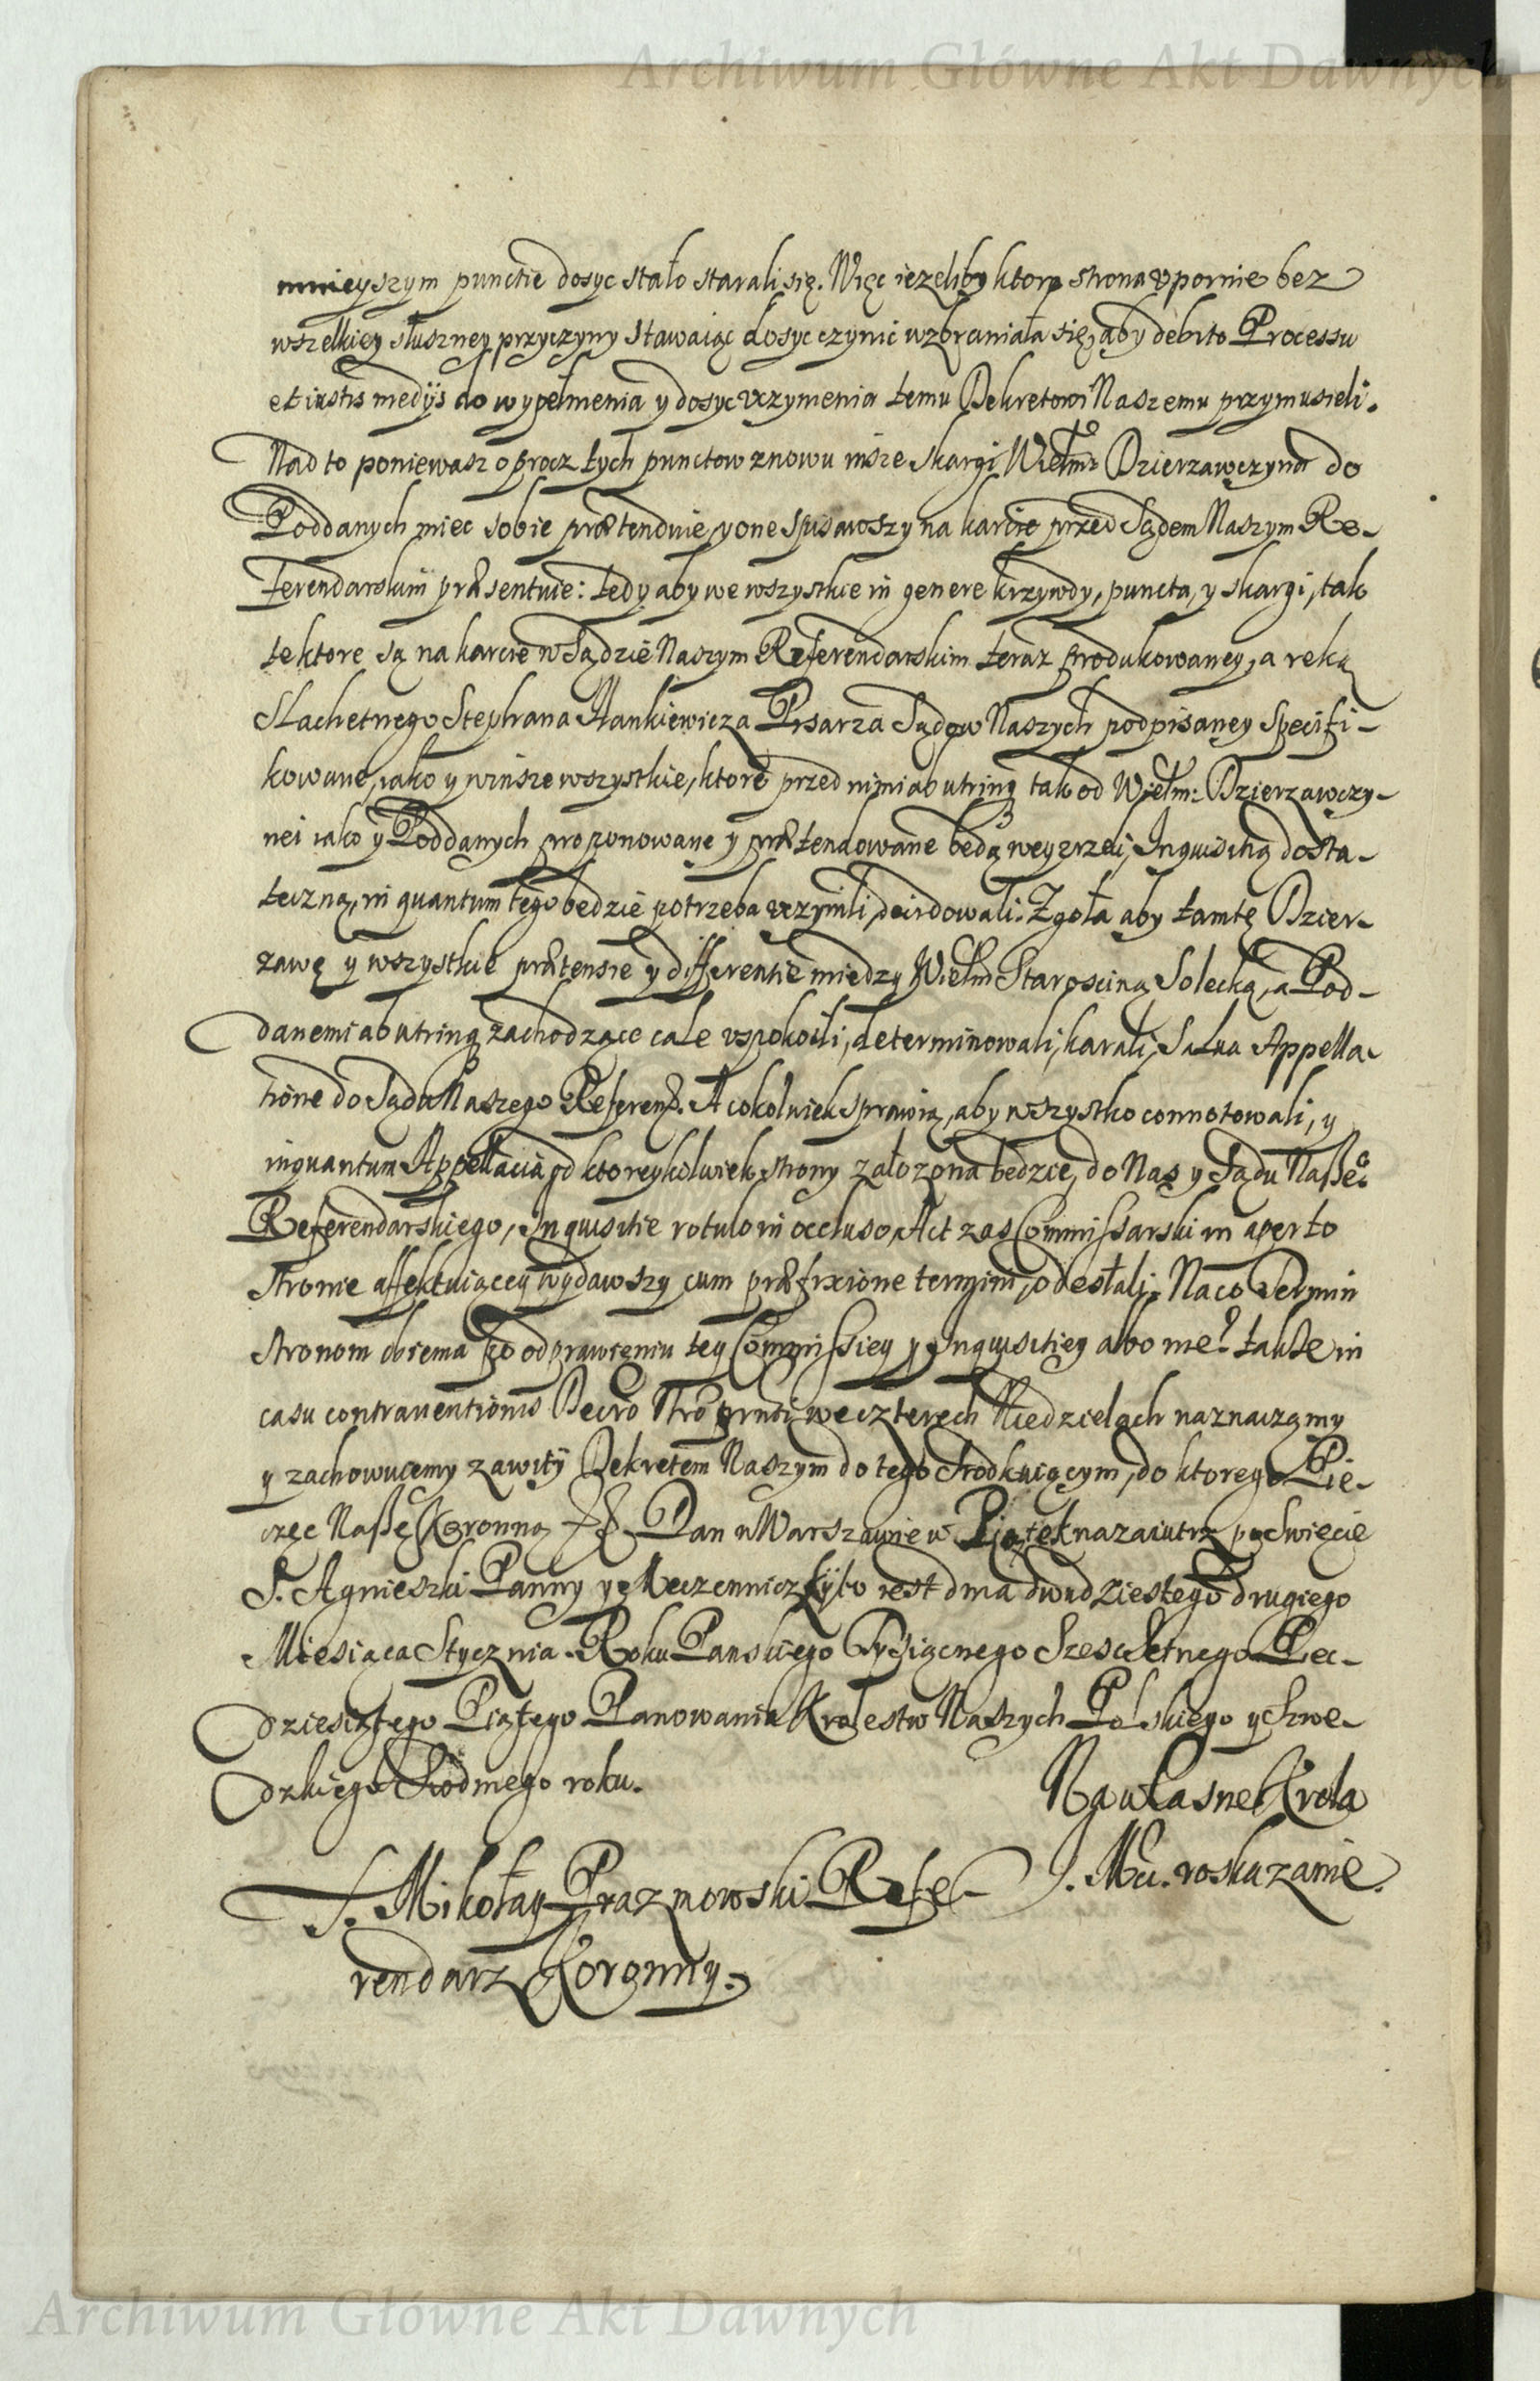 Archiwum Główne Akt Dawnych
mnieyszym punctie dosyc stało starali się. Więc iezeliby ktora strona vpornie bez
wszelkiey słuszney przyczyny stawaiąc dosyc czynic wzbraniała się, aby debito Processu
et iustis medijs do wypełnienia y dosyc vczynienia temu Dekretowi Naszemu przymusieli.
Nad to poniewasz oprocz tych punctow znowu insze skargi Wielm: Dzierzawczyna do
Poddanych miec sobie prætenduie, y one spisawszy na karcie przed Sądem Naszym Re-
ferendarskim præsentuie: tedy aby we wszystkie in genere krzywdy, puncta, y skargi, tak
te ktore są na karcie w Sądzie Naszym Referendarskim teraz produkowaney, a ręką
Slachetnego Stephana Hankiewicza Pisarza Sądow Naszych podpisaney specifi-
kowane, iako y w insze wszystkie, ktore przed nimi ab utrinq tak od Wielm: Dzierzawczy-
nei iako y Poddanych proponowane y prætendowane będą weyzrzeli, Inquisitią dosta-
teczną, in quantum tego będzie potrzeba vczynili, decidowali. Zgoła aby tamtę Dzier-
zawę y wszystkie prætensie y differentie między Wielm Starosciną Solecką, a Pod-
danemi ab utrinq zachodzące cale vspokoili, determinowali, karali, Salua Appella-
tione do Sądu Naszego Referend. A cokolwiek sprawią, aby wszystko connotowali, y
inquantum Appellacia od ktoreykolwiek strony załozona będzie, do Nas y Sądu Naßeº
Referendarskiego, Inquisitie rotulo in occluso, Act zas Commissarski in aperto
stronie affektuiącey wydawszy cum præfixione termini, odesłali. Na co Termin
stronom obiema po odprawieniu tey Commissiey y Inquisitiey albo nie? takze in
casu contrauentionis Decro Nro prnti, we czterech Niedzielach naznaczamy
y zachowuiemy zawity Dekretem Naszym do tego srodkuiącym, do ktorego Pie-
częc Naßę Koronną Dan w Warszawie w Piątek nazaiutrz po Swięcie
S. Agnieszki Panny y Męczenniczki, to iest dnia dwudziestego drugiego
Miesiąca Stycznia. Roku Panskiego Tysiącnego Szescsetnego Pięc-
dziesiątego Piątego Panowania Krolestw Naszych Polskiego y Szwe-
dzkiego Siodmego roku.
Na własne Krola
J. Mci. roskazanie.
Mikołay Prazmowski Refe-
rendarz Koronny.
Archiwum Główne Akt Dawnych